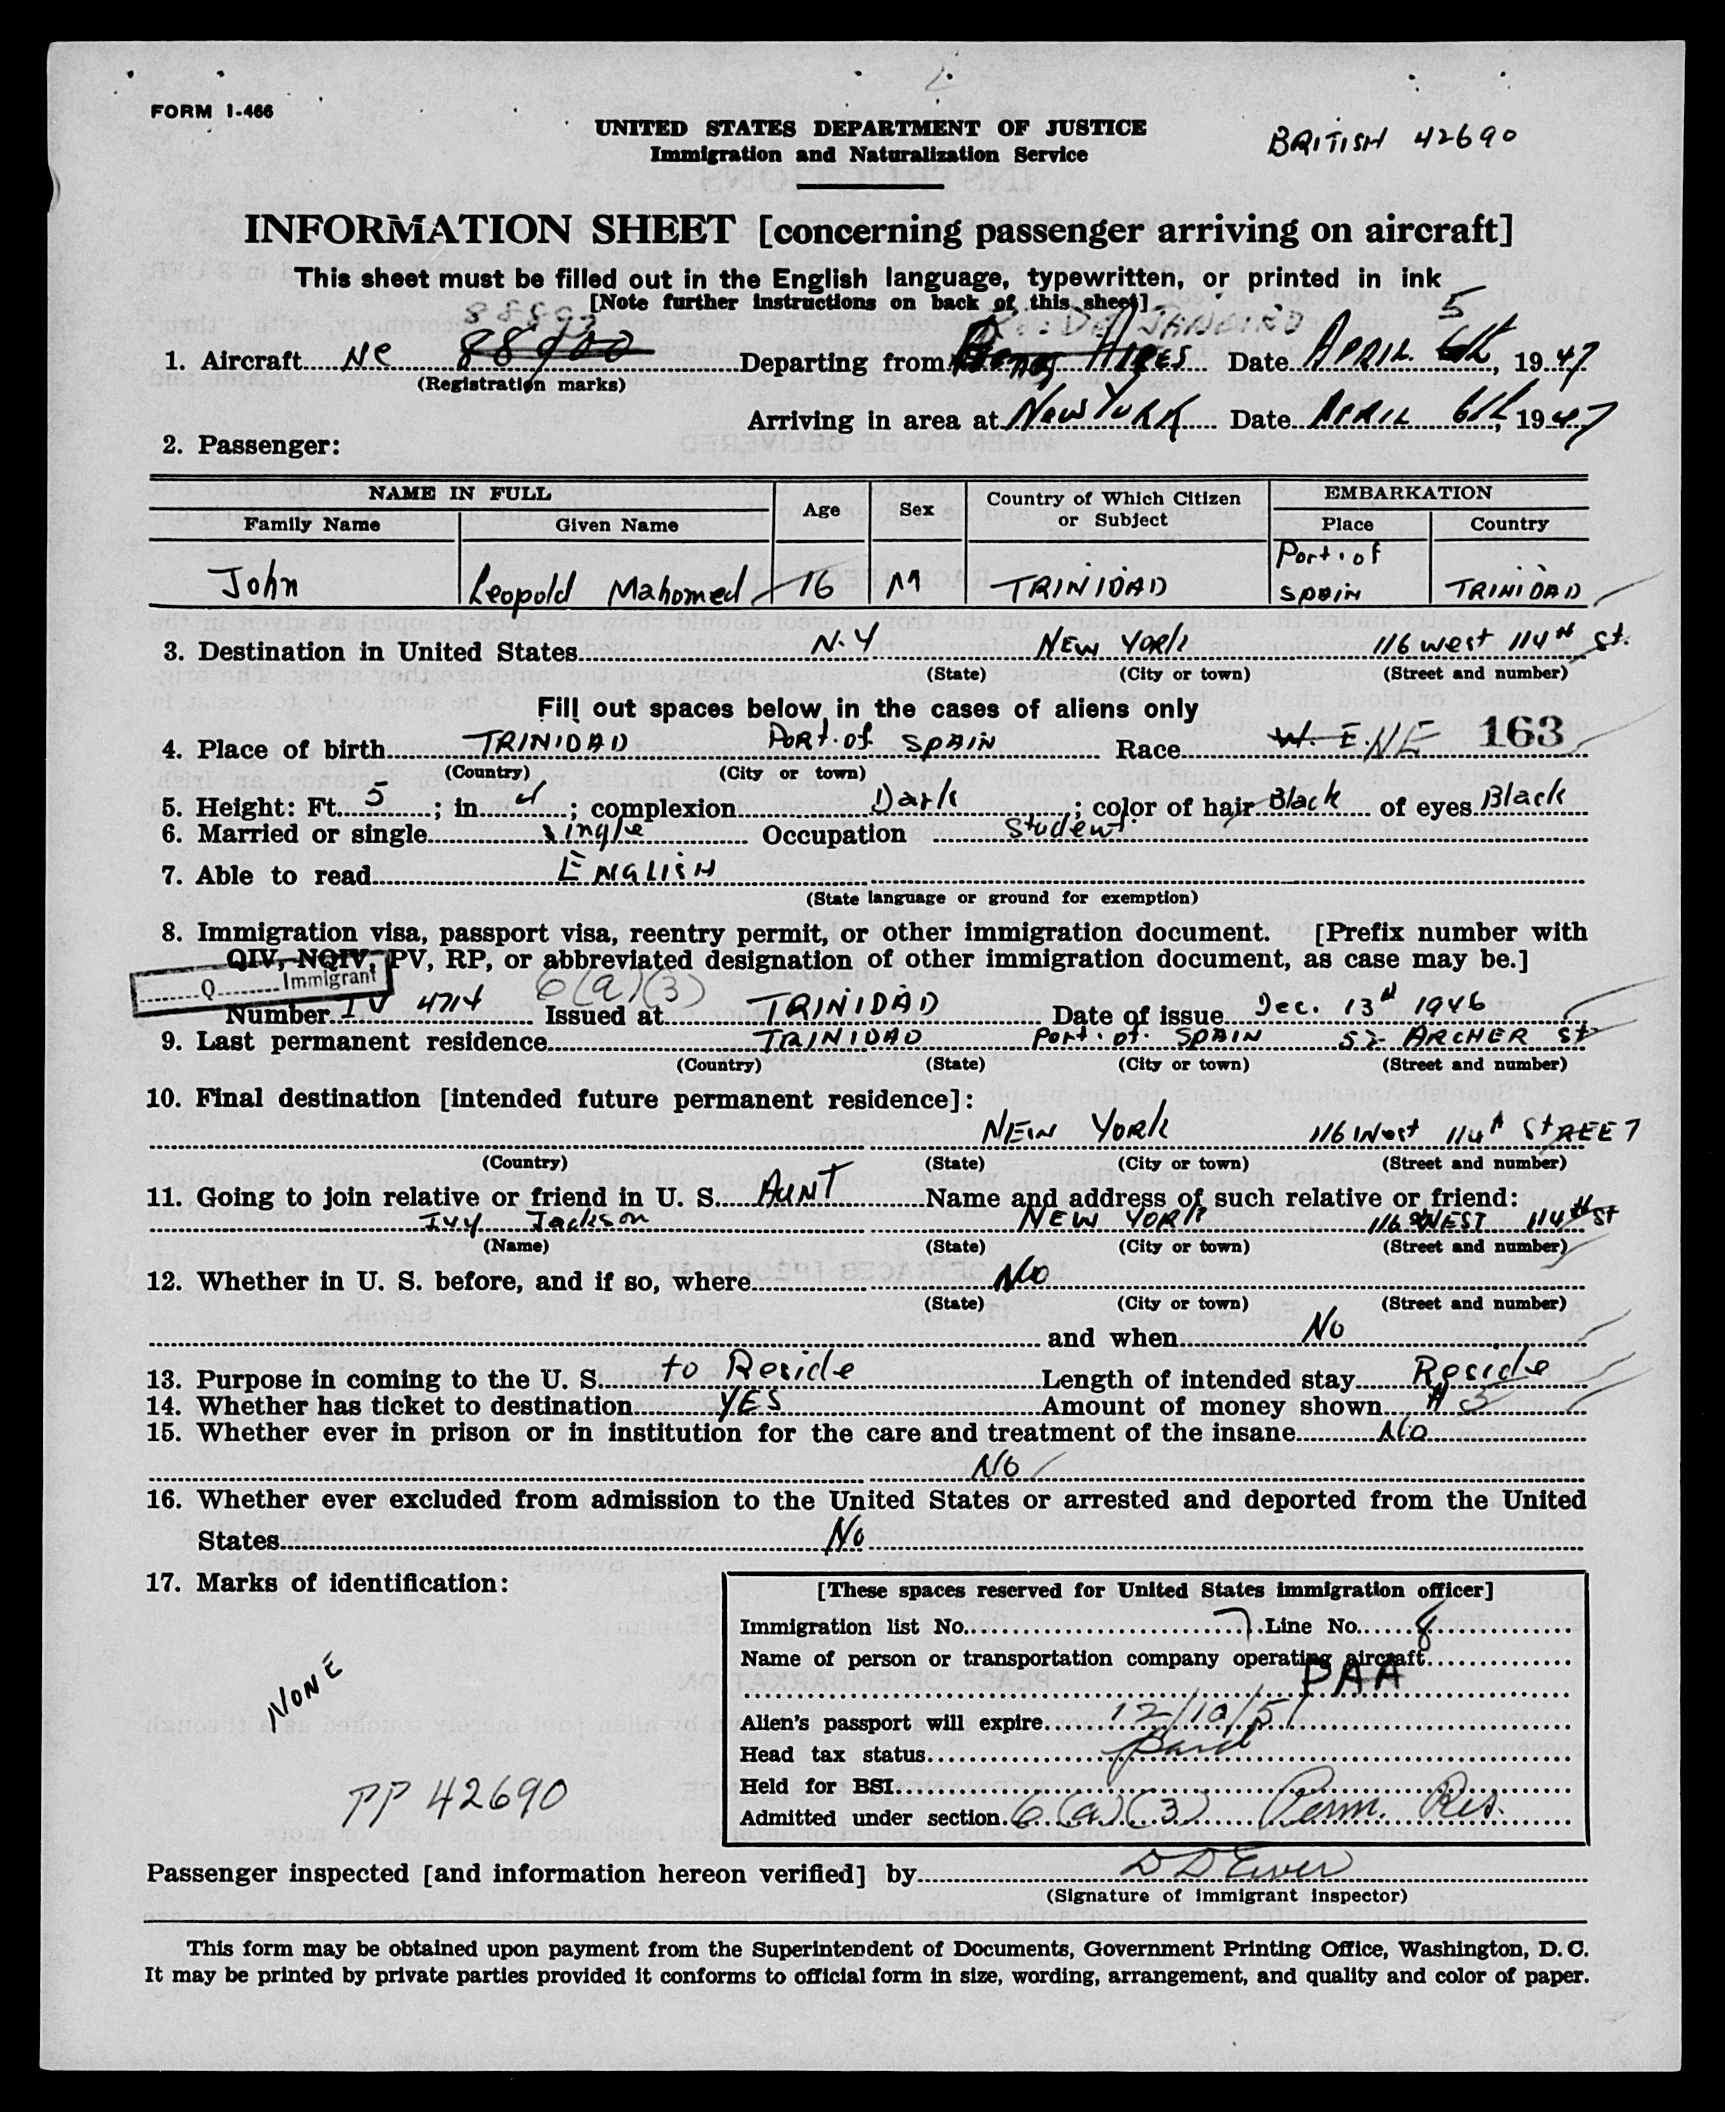 FORM I-466
UNITED STATES DEPARTMENT OF JUSTICE
Immigration and Naturalization Service
BRITISH 42690
INFORMATION SHEET [concerning passenger arriving on aircraft]
This sheet must be filled out in the English language, typewritten, or printed in ink
[Note further instructions on back of this sheet]
1. Aircraft NC 88900 Departing from Buenos Aires Date APRIL 5 6th, 1947
(Registration marks)
Arriving in area at New York Date APRIL 6th, 1947
2. Passenger:
NAME IN FULL Age Sex Country of Which Citizen or Subject EMBARKATION
Family Name Given Name Place Country
John Leopold Mahomed 16 M TRINIDAD Port of SPAIN TRINIDAD
3. Destination in United States N.Y NEW YORK 116 West 114th St.
(State) (City or town) (Street and number)
Fill out spaces below in the cases of aliens only
4. Place of birth TRINIDAD Port of SPAIN Race W. E. NE 163
(Country) (City or town)
5. Height: Ft. 5; in. 4; complexion Dark; color of hair Black of eyes Black
6. Married or single single Occupation Student
7. Able to read ENGLISH
(State language or ground for exemption)
8. Immigration visa, passport visa, reentry permit, or other immigration document. [Prefix number with
QIV, NQIV, PV, RP, or abbreviated designation of other immigration document, as case may be.]
Q Immigrant 6(a)(3)
Number IV 4714 Issued at TRINIDAD Date of issue Dec. 13th 1946
9. Last permanent residence TRINIDAD Port of SPAIN 52 ARCHER St
(Country) (State) (City or town) (Street and number)
10. Final destination [intended future permanent residence]:
NEW YORK 116 West 114th STREET
(Country) (State) (City or town) (Street and number)
11. Going to join relative or friend in U. S. AUNT Name and address of such relative or friend:
Ivy Jackson NEW YORK 116 WEST 114th St
(Name) (State) (City or town) (Street and number)
12. Whether in U. S. before, and if so, where No
(State) (City or town) (Street and number)
and when No
13. Purpose in coming to the U. S. to Reside Length of intended stay Reside
14. Whether has ticket to destination YES Amount of money shown 5
15. Whether ever in prison or in institution for the care and treatment of the insane No
No
16. Whether ever excluded from admission to the United States or arrested and deported from the United
States No
17. Marks of identification:
NONE
PP 42690
[These spaces reserved for United States immigration officer]
Immigration list No. 7 Line No. 8
Name of person or transportation company operating aircraft
PAA
Alien's passport will expire 12/10/51
Head tax status paid
Held for BSI
Admitted under section 6(a)(3) Perm. Res.
Passenger inspected [and information hereon verified] by
(Signature of immigrant inspector)
This form may be obtained upon payment from the Superintendent of Documents, Government Printing Office, Washington, D. C.
It may be printed by private parties provided it conforms to official form in size, wording, arrangement, and quality and color of paper.